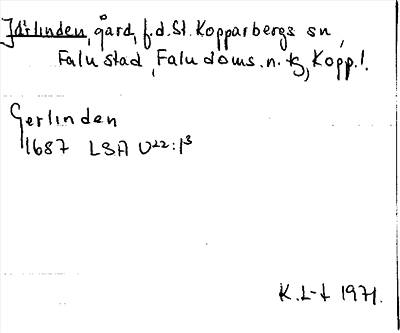 Järlinden, gård, f.d. St. Kopparbergs sn,
Falu stad, Falu doms. n. tg, Kopp. l.
Gerlinden
1687 LSA U22:1³
K.L-t 1971.